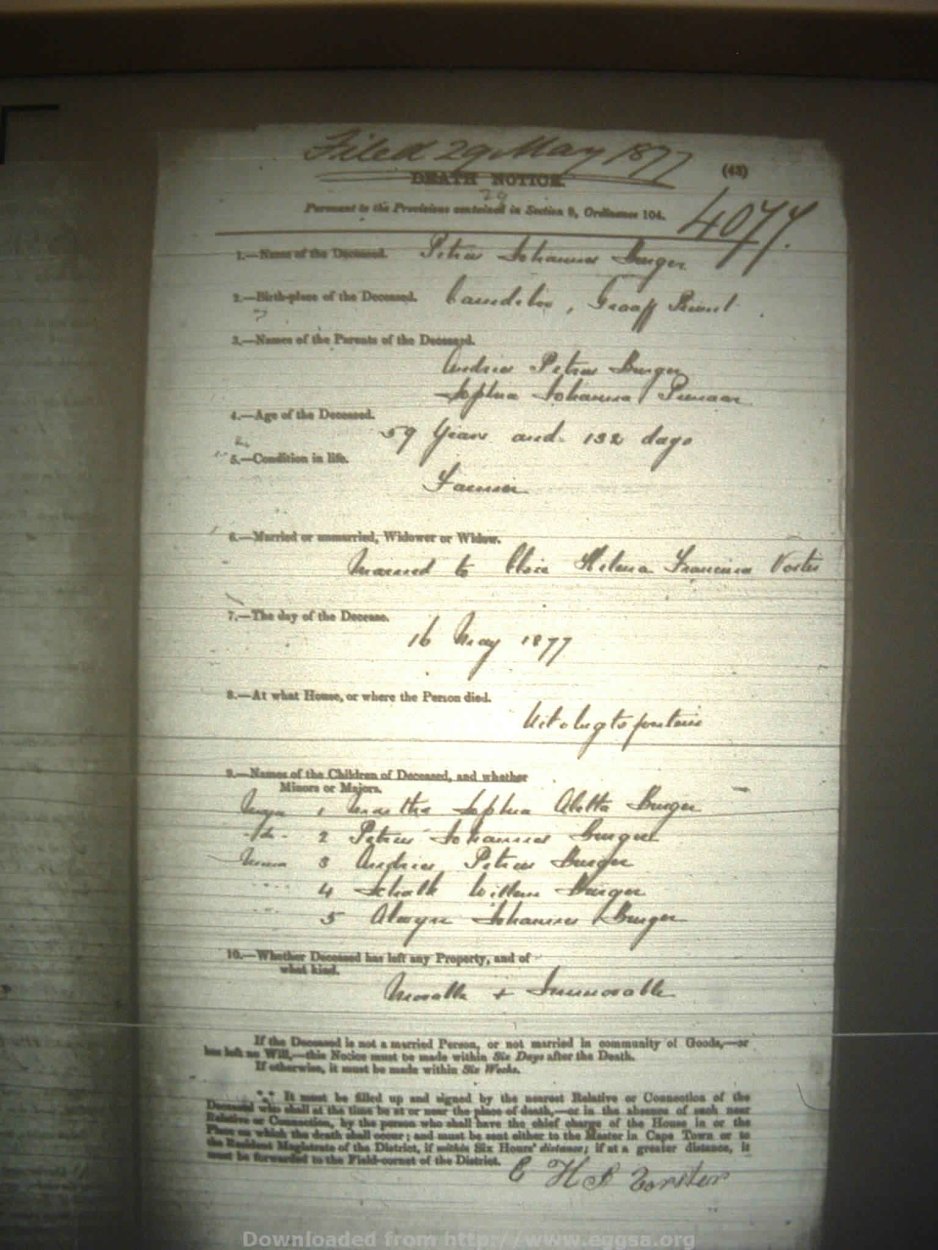 Filed 29 May 1877
(43)
DEATH NOTICE.
29
Pursuant to the Provisions contained in Section 9, Ordinance 104.
4077.
1.—Name of the Deceased. Petrus Johannes Burger
2.—Birth-place of the Deceased. Camdeboo, Graaff Reinet.
3.—Names of the Parents of the Deceased.
Andries Petrus Burger
Sophia Johanna Pienaar
4.—Age of the Deceased.
59 Years and 132 days
5.—Condition in life.
Farmer
6.—Married or unmarried, Widower or Widow.
Married to Helena Francina Vorster
7.—The day of the Decease.
16 May 1877
8.—At what House, or where the Person died.
9.—Names of the Children of Deceased, and whether
Minors or Majors.
Major 1 Martha Sophia Aletta Burger
-do- 2 Petrus Johannes Burger
Minor 3 Andries Petrus Burger
4 Schalk Willem Burger
5 Alwyn Johannes Burger
10.—Whether Deceased has left any Property, and of
what kind.
Movable + Immovable
If the Deceased is not a married Person, or not married in community of Goods,—or
has left no Will,—this Notice must be made within Six Days after the Death.
If otherwise, it must be made within Six Weeks.
*** It must be filled up and signed by the nearest Relative or Connection of the
Deceased who shall at the time be at or near the place of death,—or in the absence of such near
Relative or Connection, by the person who shall have the chief charge of the House in or the
Place on which the death shall occur; and must be sent either to the Master in Cape Town or to
the Resident Magistrate of the District, if within Six Hours' distance; if at a greater distance, it
must be forwarded to the Field-cornet of the District.
C H F Vorster
Downloaded from http://www.eggsa.org